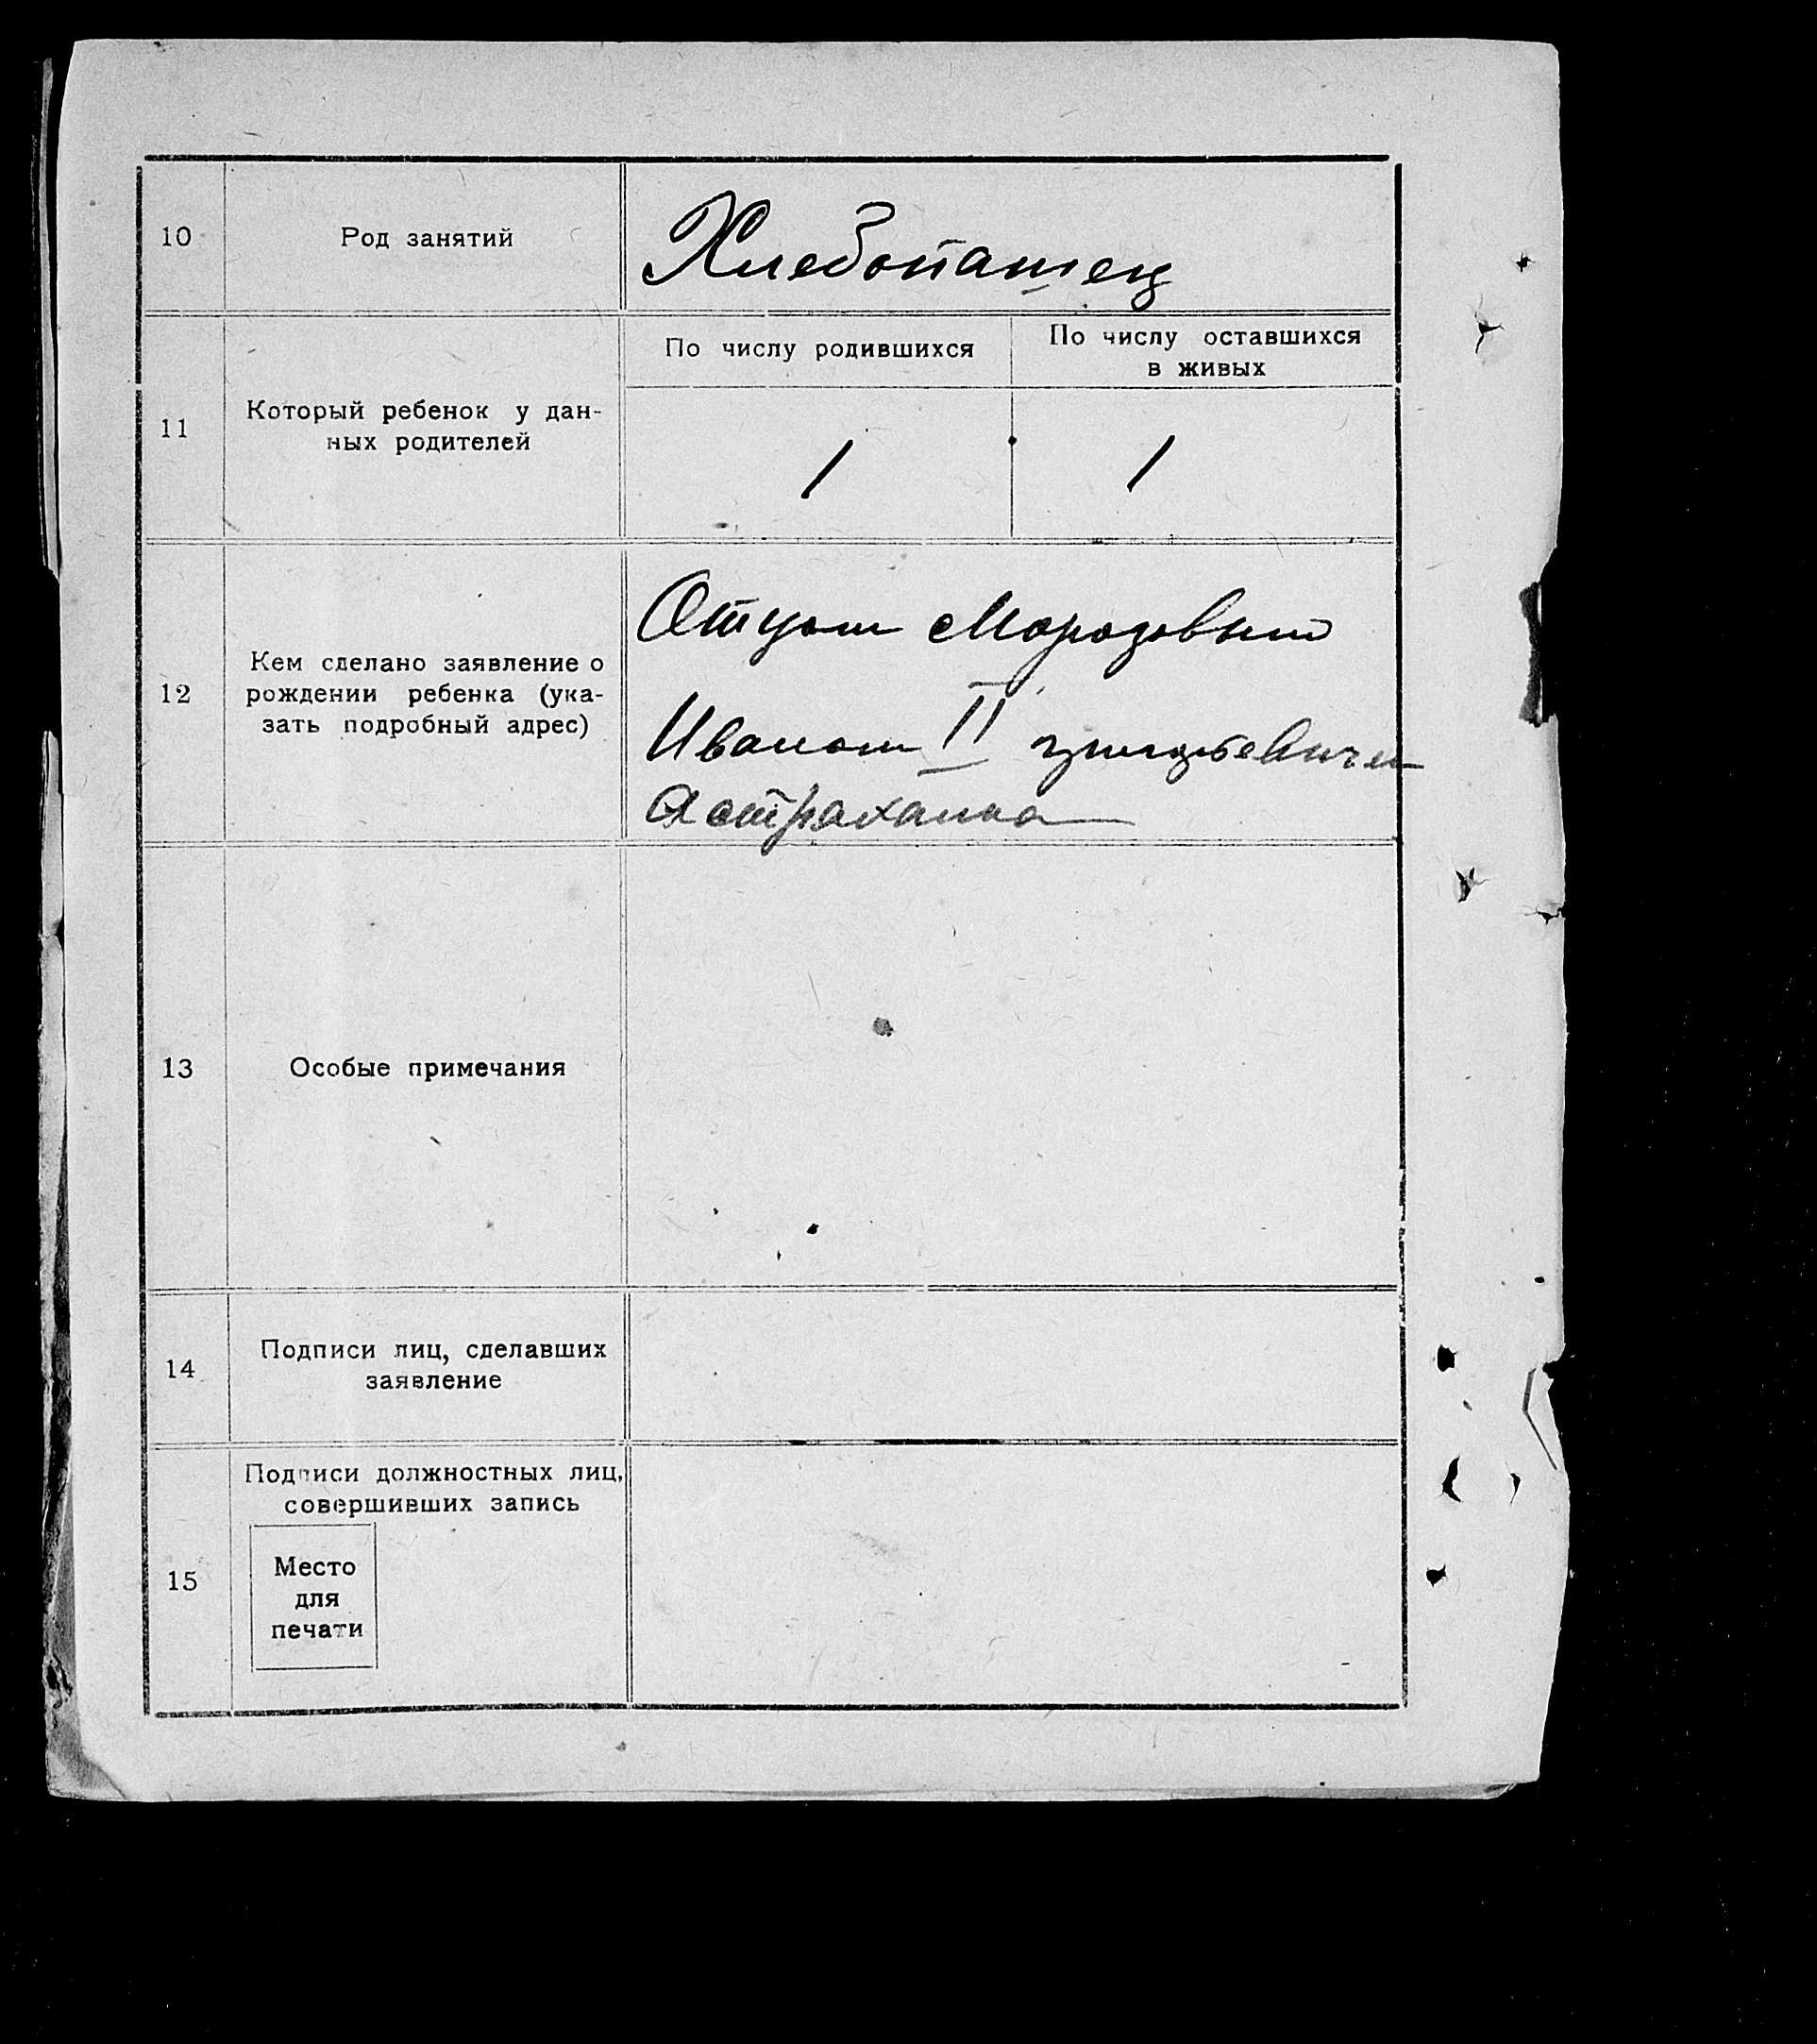 10
Род занятий
Хлебопашец
11
Который ребенок у дан-
ных родителей
По числу родившихся
По числу оставшихся
в живых
1
1
12
Кем сделано заявление о
рождении ребенка (ука-
зать подробный адрес)
Отцом Морозовым
Иваном II
Астраханка
13
Особые примечания
14
Подписи лиц, сделавших
заявление
15
Подписи должностных лиц,
совершивших запись
Место
для
печати